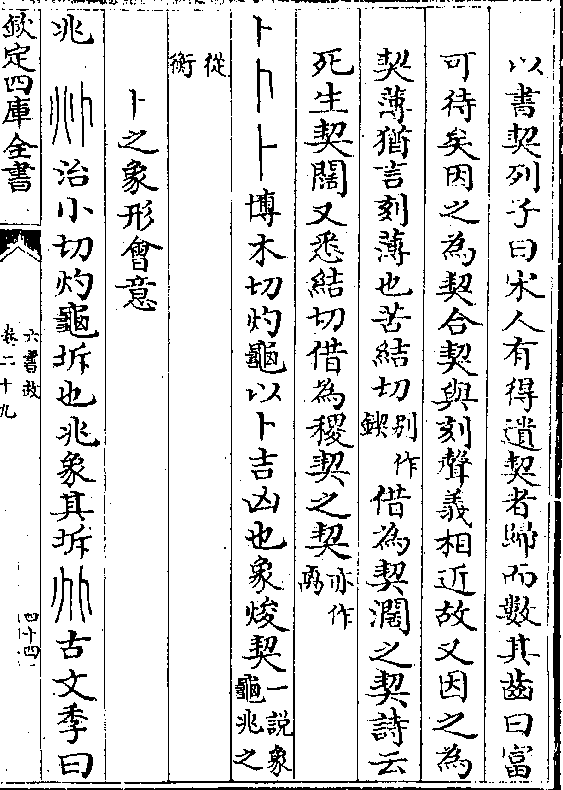 以書契列子曰宋人有得遺契者歸而數其齒曰富
可待矣因之為契合契與刻聲義相近故又因之為
契薄猶言刻薄也苦結切別作鍥借為契濶之契詩云
死生契闊又悉結切借為稷契之契亦作禼
卜 博木切灼龜以卜吉凶也象焌契一說象龜兆之
從衡
卜之象形會意
兆 治小切灼龜坼也兆象其坼 古文季曰
欽定四庫全書
六書故
卷二十九
四十四